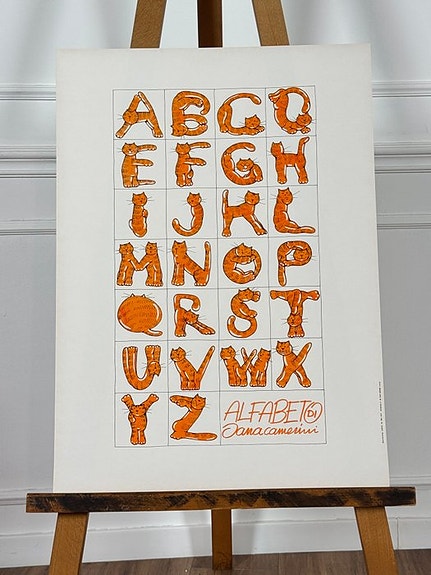 A B C D
E F G H
I J K L
M N O P
Q R S T
U V W X
Y Z ALFABETO DI
Dana camerini